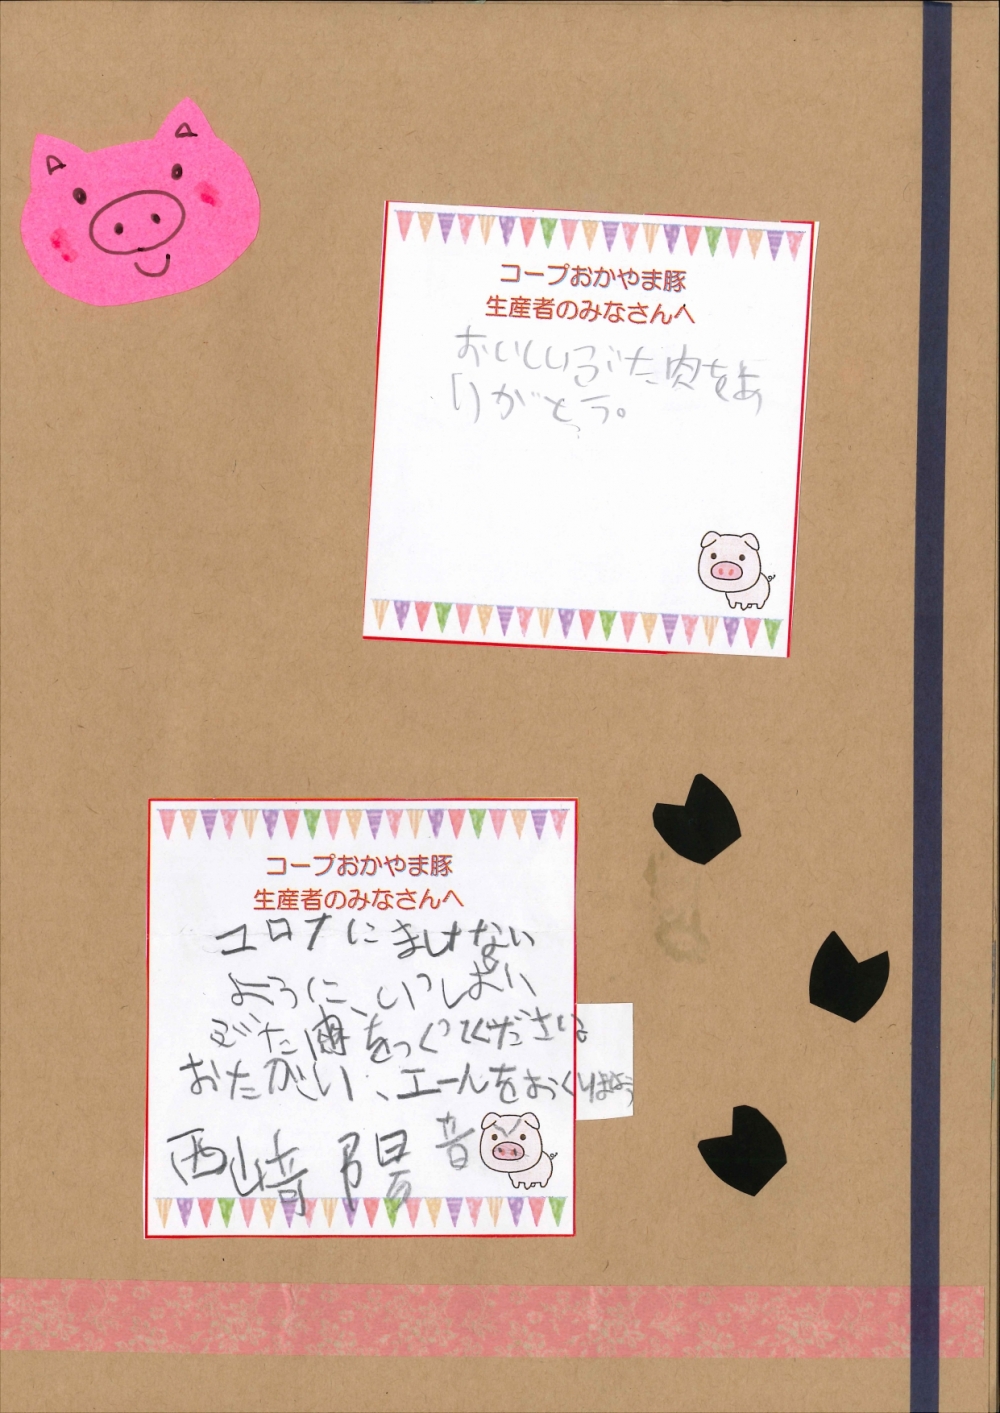 コープおかやま豚
生産者のみなさんへ
おいしいぶた肉をあ
りがとう。
コープおかやま豚
生産者のみなさんへ
コロナにまけない
ように、いっしょに
ぶた肉をつくてください
おたがい、エールをおくりましょう
西崎 陽音